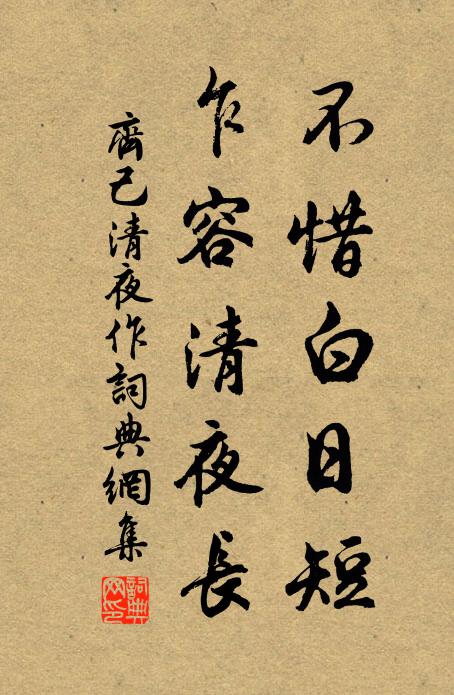 不惜白日短
乍容清夜長
齊己清夜作詞典網集
詞典網印